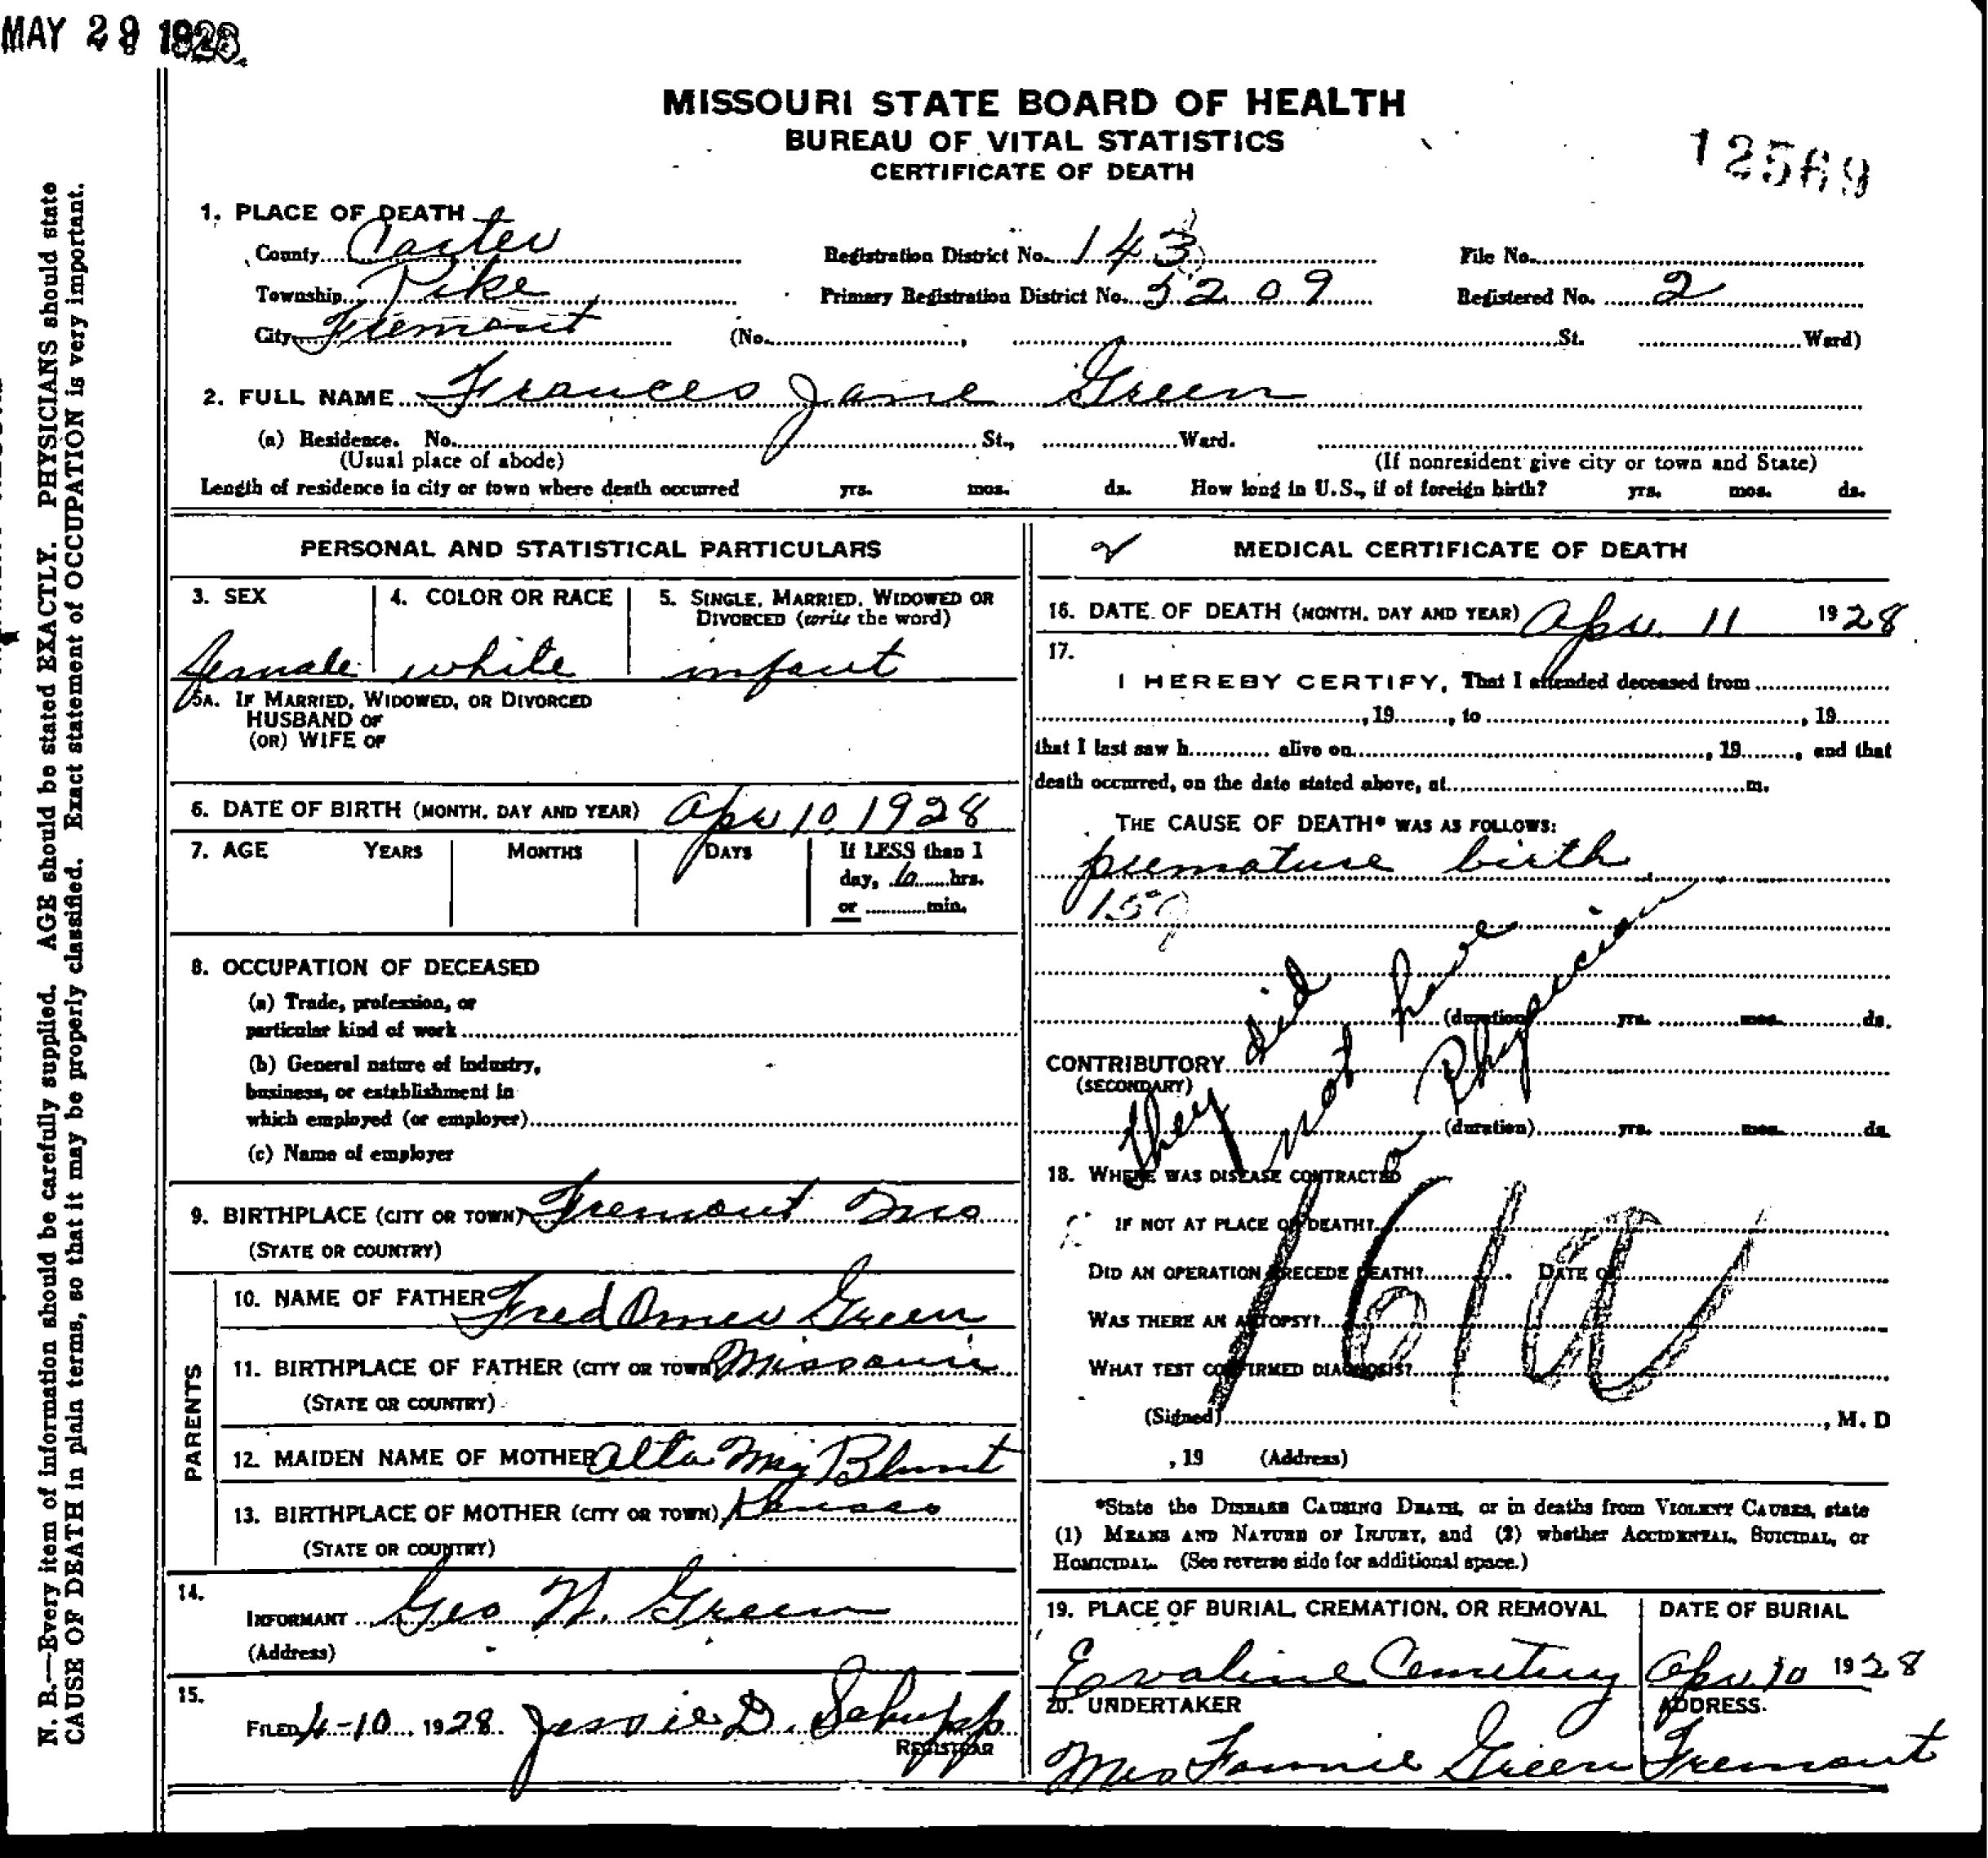 MAY 29 1928
MISSOURI STATE BOARD OF HEALTH
BUREAU OF VITAL STATISTICS
CERTIFICATE OF DEATH
12569
1. PLACE OF DEATH
County Carter Registration District No. 143 File No.
Township Pike Primary Registration District No. 5209 Registered No. 2
City Fremont (No. , St. Ward)
2. FULL NAME Frances Jane Green
(a) Residence. No. St., Ward.
(Usual place of abode) (If nonresident give city or town and State)
Length of residence in city or town where death occurred yrs. mos. ds. How long in U.S., if of foreign birth? yrs. mos. ds.
PERSONAL AND STATISTICAL PARTICULARS
3. SEX 4. COLOR OR RACE 5. SINGLE, MARRIED, WIDOWED OR
DIVORCED (write the word)
female white infant
5A. IF MARRIED, WIDOWED, OR DIVORCED
HUSBAND OF
(OR) WIFE OF
6. DATE OF BIRTH (MONTH, DAY AND YEAR) Apr 10, 1928
7. AGE YEARS MONTHS DAYS If LESS than 1
day, hrs.
or min.
8. OCCUPATION OF DECEASED
(a) Trade, profession, or
particular kind of work
(b) General nature of industry,
business, or establishment in
which employed (or employer)
(c) Name of employer
9. BIRTHPLACE (CITY OR TOWN) Fremont Mo
(STATE OR COUNTRY)
PARENTS
10. NAME OF FATHER Fred Omer Green
11. BIRTHPLACE OF FATHER (CITY OR TOWN) Missouri
(STATE OR COUNTRY)
12. MAIDEN NAME OF MOTHER Alta May Blunt
13. BIRTHPLACE OF MOTHER (CITY OR TOWN) Kansas
(STATE OR COUNTRY)
14.
INFORMANT Geo W. Green
(Address)
15.
FILED 4-10, 1928 Jessie D. Schupp
REGISTRAR
2 MEDICAL CERTIFICATE OF DEATH
16. DATE OF DEATH (MONTH, DAY AND YEAR) Apr. 11 1928
17.
I HEREBY CERTIFY, That I attended deceased from
, 19 , to , 19
that I last saw h alive on , 19 , and that
death occurred, on the date stated above, at m.
THE CAUSE OF DEATH* WAS AS FOLLOWS:
premature birth
159
(duration) yrs. mos. ds.
CONTRIBUTORY
(SECONDARY)
(duration) yrs. mos. ds.
they did
not have
a Physician
18. WHERE WAS DISEASE CONTRACTED
IF NOT AT PLACE OF DEATH?
DID AN OPERATION PRECEDE DEATH? DATE OF
WAS THERE AN AUTOPSY?
WHAT TEST CONFIRMED DIAGNOSIS?
161a
(Signed) , M. D
, 19 (Address)
*State the DISEASE CAUSING DEATH, or in deaths from VIOLENT CAUSES, state
(1) MEANS AND NATURE OF INJURY, and (2) whether ACCIDENTAL, SUICIDAL, or
HOMICIDAL. (See reverse side for additional space.)
19. PLACE OF BURIAL, CREMATION, OR REMOVAL DATE OF BURIAL
Evaline Cemetery Apr. 10 1928
20. UNDERTAKER ADDRESS
Mrs Fannie Green Fremont
N. B.—Every item of information should be carefully supplied. AGE should be stated EXACTLY. PHYSICIANS should state
CAUSE OF DEATH in plain terms, so that it may be properly classified. Exact statement of OCCUPATION is very important.